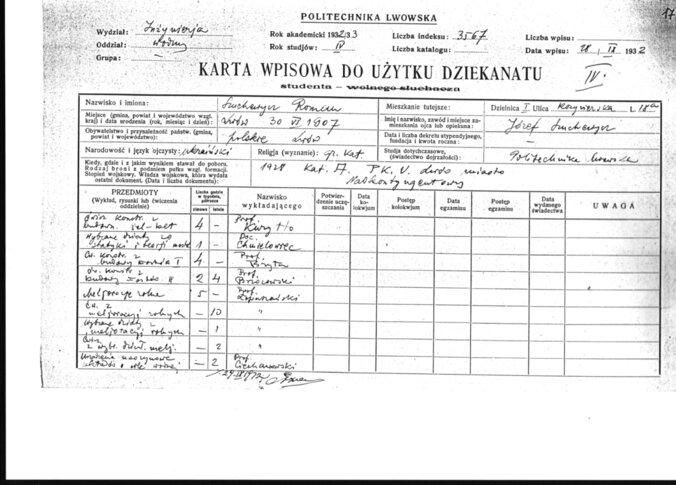 17
POLITECHNIKA LWOWSKA
Wydział: Inżynierja
Rok akademicki 1932/33 Liczba indeksu: 3567 Liczba wpisu:
Oddział: Wodny
Rok studjów: IV Liczba katalogu: Data wpisu: 28 IX 1932
Grupa: —
KARTA WPISOWA DO UŻYTKU DZIEKANATU IV.
studenta – wolnego słuchacza
Nazwisko i imiona: Suchewycz Roman Mieszkanie tutejsze: Dzielnica I Ulica L. 18a
Miejsce (gmina, powiat i województwo wzgl. kraj) i data urodzenia (rok, miesiąc i dzień): Lwów 30 VI 1907
Imię i nazwisko, zawód i miejsce zamieszkania ojca lub opiekuna: Józef Suchewycz
Obywatelstwo i przynależność państw. (gmina, powiat i województwo): polskie Lwów
Data i liczba dekretu stypendjalnego, fundacja i kwota roczna:
Narodowość i język ojczysty: ukraiński Religja (wyznanie): gr. kat.
Studja dotychczasowe, (świadectwo dojrzałości): Politechnika Lwowska
Kiedy, gdzie i z jakim wynikiem stawał do poboru. Rodzaj broni z podaniem pułku wzgl. formacji. Stopień wojskowy. Władza wojskowa, która wydała ostatni dokument. (Data i liczba dokumentu): 1928 Kat. A. P.K.U. Lwów miasto
Nadkontyngentowy
PRZEDMIOTY (Wykład, rysunki lub ćwiczenia oddzielnie) Liczba godzin w tygodniu, półrocze zimowe letnie Nazwisko wykładającego Potwierdzenie uczęszczania Data kolokwjum Postęp kolokwjum Data egzaminu Postęp egzaminu Data wydanego świadectwa UWAGA
Ćwicz. konstr. z budown. żel-bet 4 – Prof. Kuryłło
Wybrane działy ze statyki i teorji most. 1 – Doc. Chmielowiec
Ćw. konstr. z budowy mostów I 4 – Prof. Bryła
Ćw. konstr. z budowy mostów II 2 4 Prof.
Meljoracje rolne 5 – Prof. Łopuszański
Ćw. z meljoracyj rolnych – 10 "
Wybrane działy z meljoracyj rolnych – 1 "
Ćwicz. z wybr. dział. melj. – 2 "
– 2 Prof. Ciechanowski
29 IX 1932